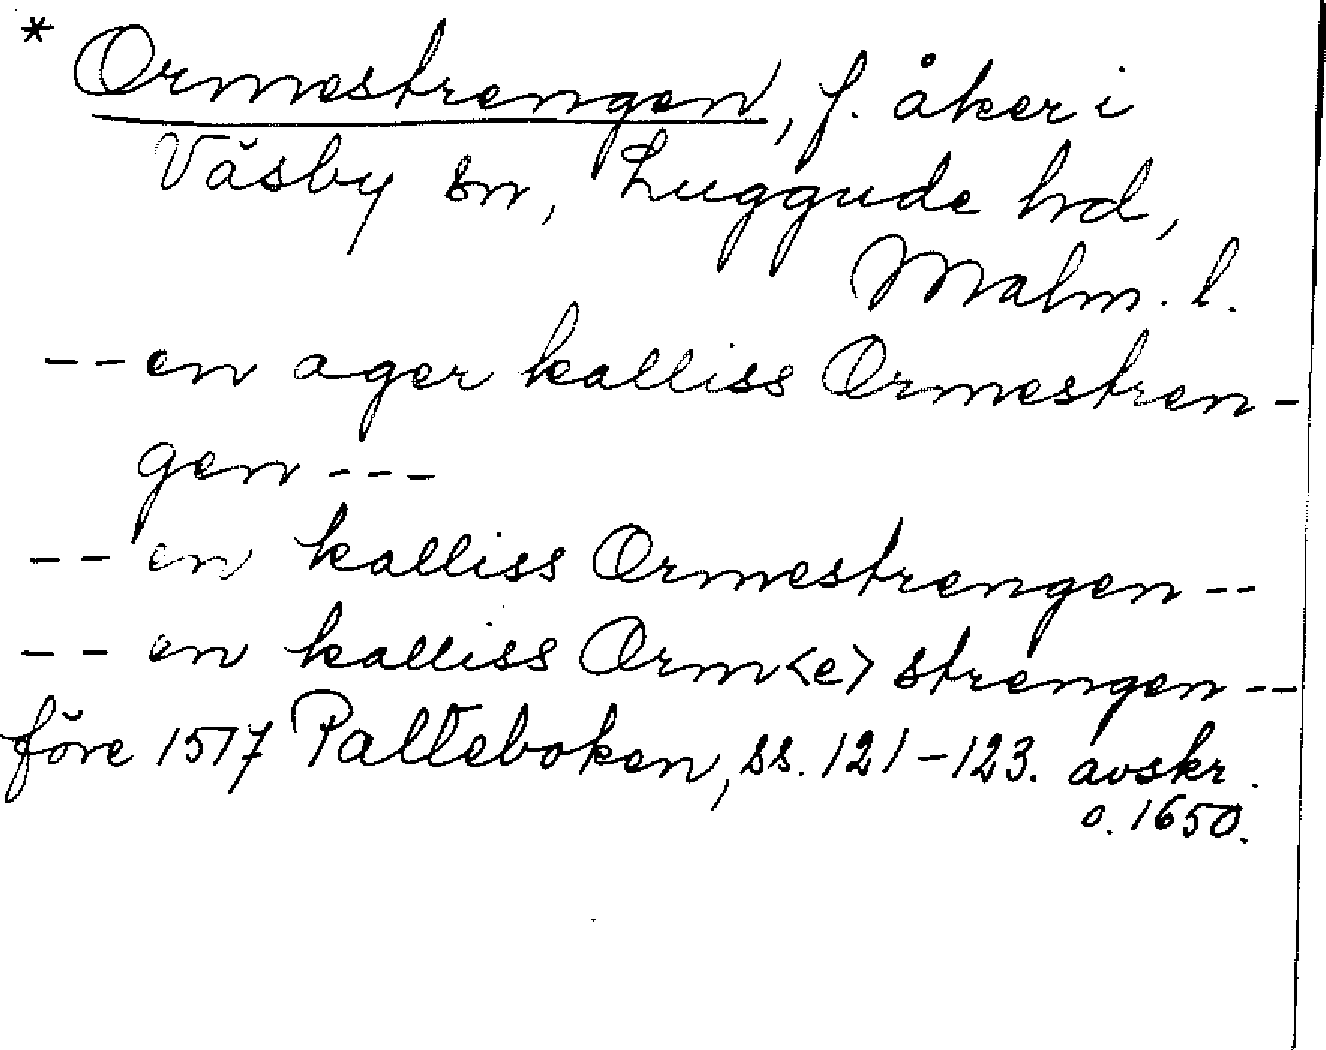 * Ormestrengen, f. åker i
Väsby sn, Luggude hd,
Malm. l.
-- en ager kalliss Ormestren-
gen ---
-- en kalliss Ormestrengen --
-- en kalliss Orm<e>strengen --
före 1517 Palteboken, ss. 121-123. avskr.
o. 1650.